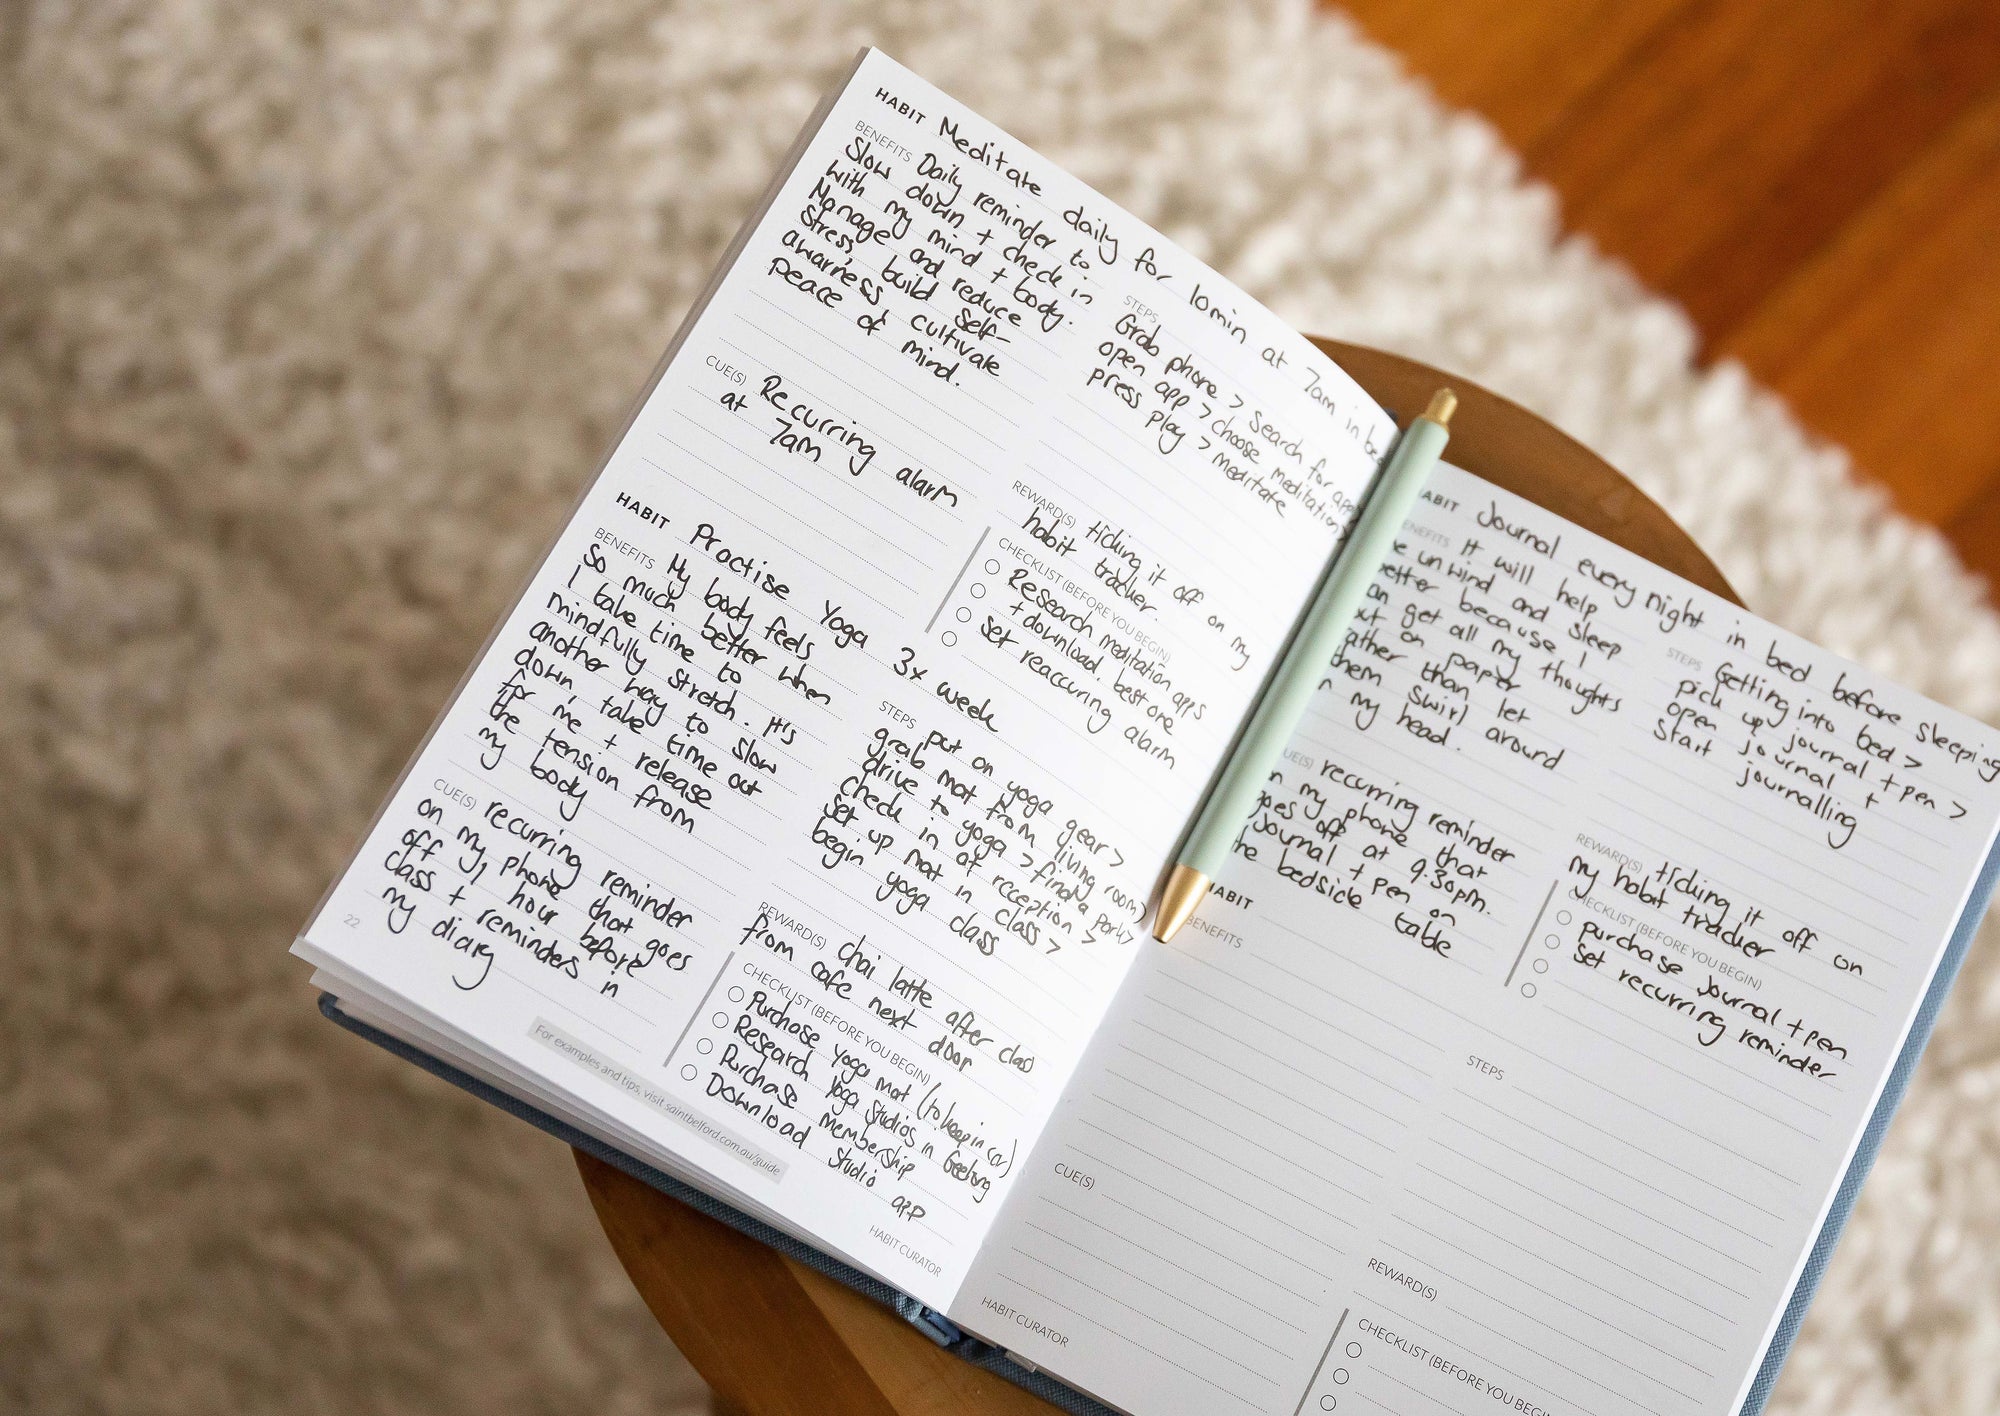 HABIT Meditate daily for 10min at 7am in bed
BENEFITS Daily reminder to
Slow down + check in
with my mind + body.
Manage and reduce
stress, build self-
awarness, cultivate
peace of mind.
STEPS
Grab phone > Search for app >
open app > choose meditation >
press play > meditate
CUE(S) Recurring alarm
at 7am
REWARD(S) ticking it off on my
habit tracker.
CHECKLIST (BEFORE YOU BEGIN)
Research meditation apps
+ download best one
set reaccuring alarm
HABIT Practise Yoga 3x week
BENEFITS My body feels
so much better when
I take time to
mindfully stretch. It's
another way to slow
down, take time out
for me + release
the tension from
my body
STEPS put on yoga gear >
grab mat from living room >
drive to yoga > find a park >
check in at reception >
set up mat in class >
begin yoga class
CUE(S) recurring reminder
on my phone that goes
off 1 hour before
class + reminders in
my diary
REWARD(S) chai latte after class
from cafe next door
CHECKLIST (BEFORE YOU BEGIN)
Purchase yoga mat (to keep in car)
Research yoga studios in Geelong
Purchase membership
Download studio app
22
For examples and tips, visit saintbelford.com.au/guide
HABIT CURATOR
ABIT Journal every night in bed before sleeping
ENEFITS It will help
e unwind and sleep
better because I
an get all my thoughts
out on paper
rather than let
them swirl around
n my head.
STEPS
Getting into bed >
pick up journal + pen >
open journal +
start journalling
UE(S) recurring reminder
on my phone that
goes off at 9:30pm.
Journal + pen on
the bedside table
REWARD(S) ticking it off on
my habit tracker
CHECKLIST (BEFORE YOU BEGIN)
purchase journal + pen
set recurring reminder
HABIT
BENEFITS
STEPS
CUE(S)
REWARD(S)
CHECKLIST (BEFORE YOU BEGIN
HABIT CURATOR